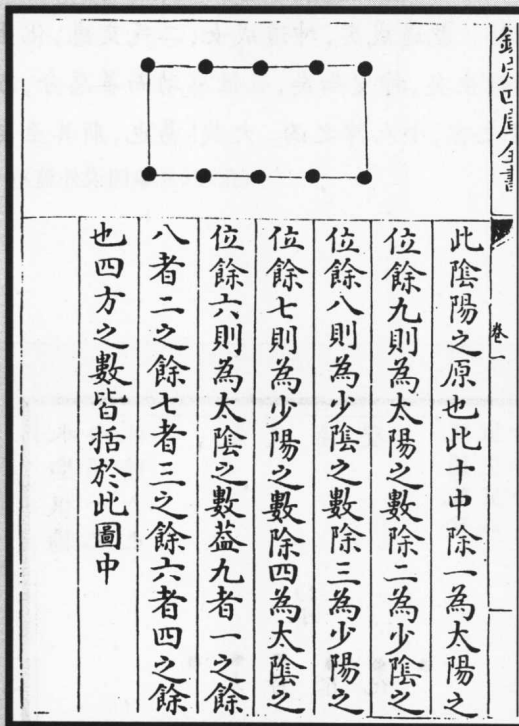 欽定四庫全書
卷一
此陰陽之原也此十中除一為太陽之
位餘九則為太陽之數除二為少陰之
位餘八則為少陰之數除三為少陽之
位餘七則為少陽之數除四為太陰之
位餘六則為太陰之數葢九者一之餘
八者二之餘七者三之餘六者四之餘
也四方之數皆括於此圖中